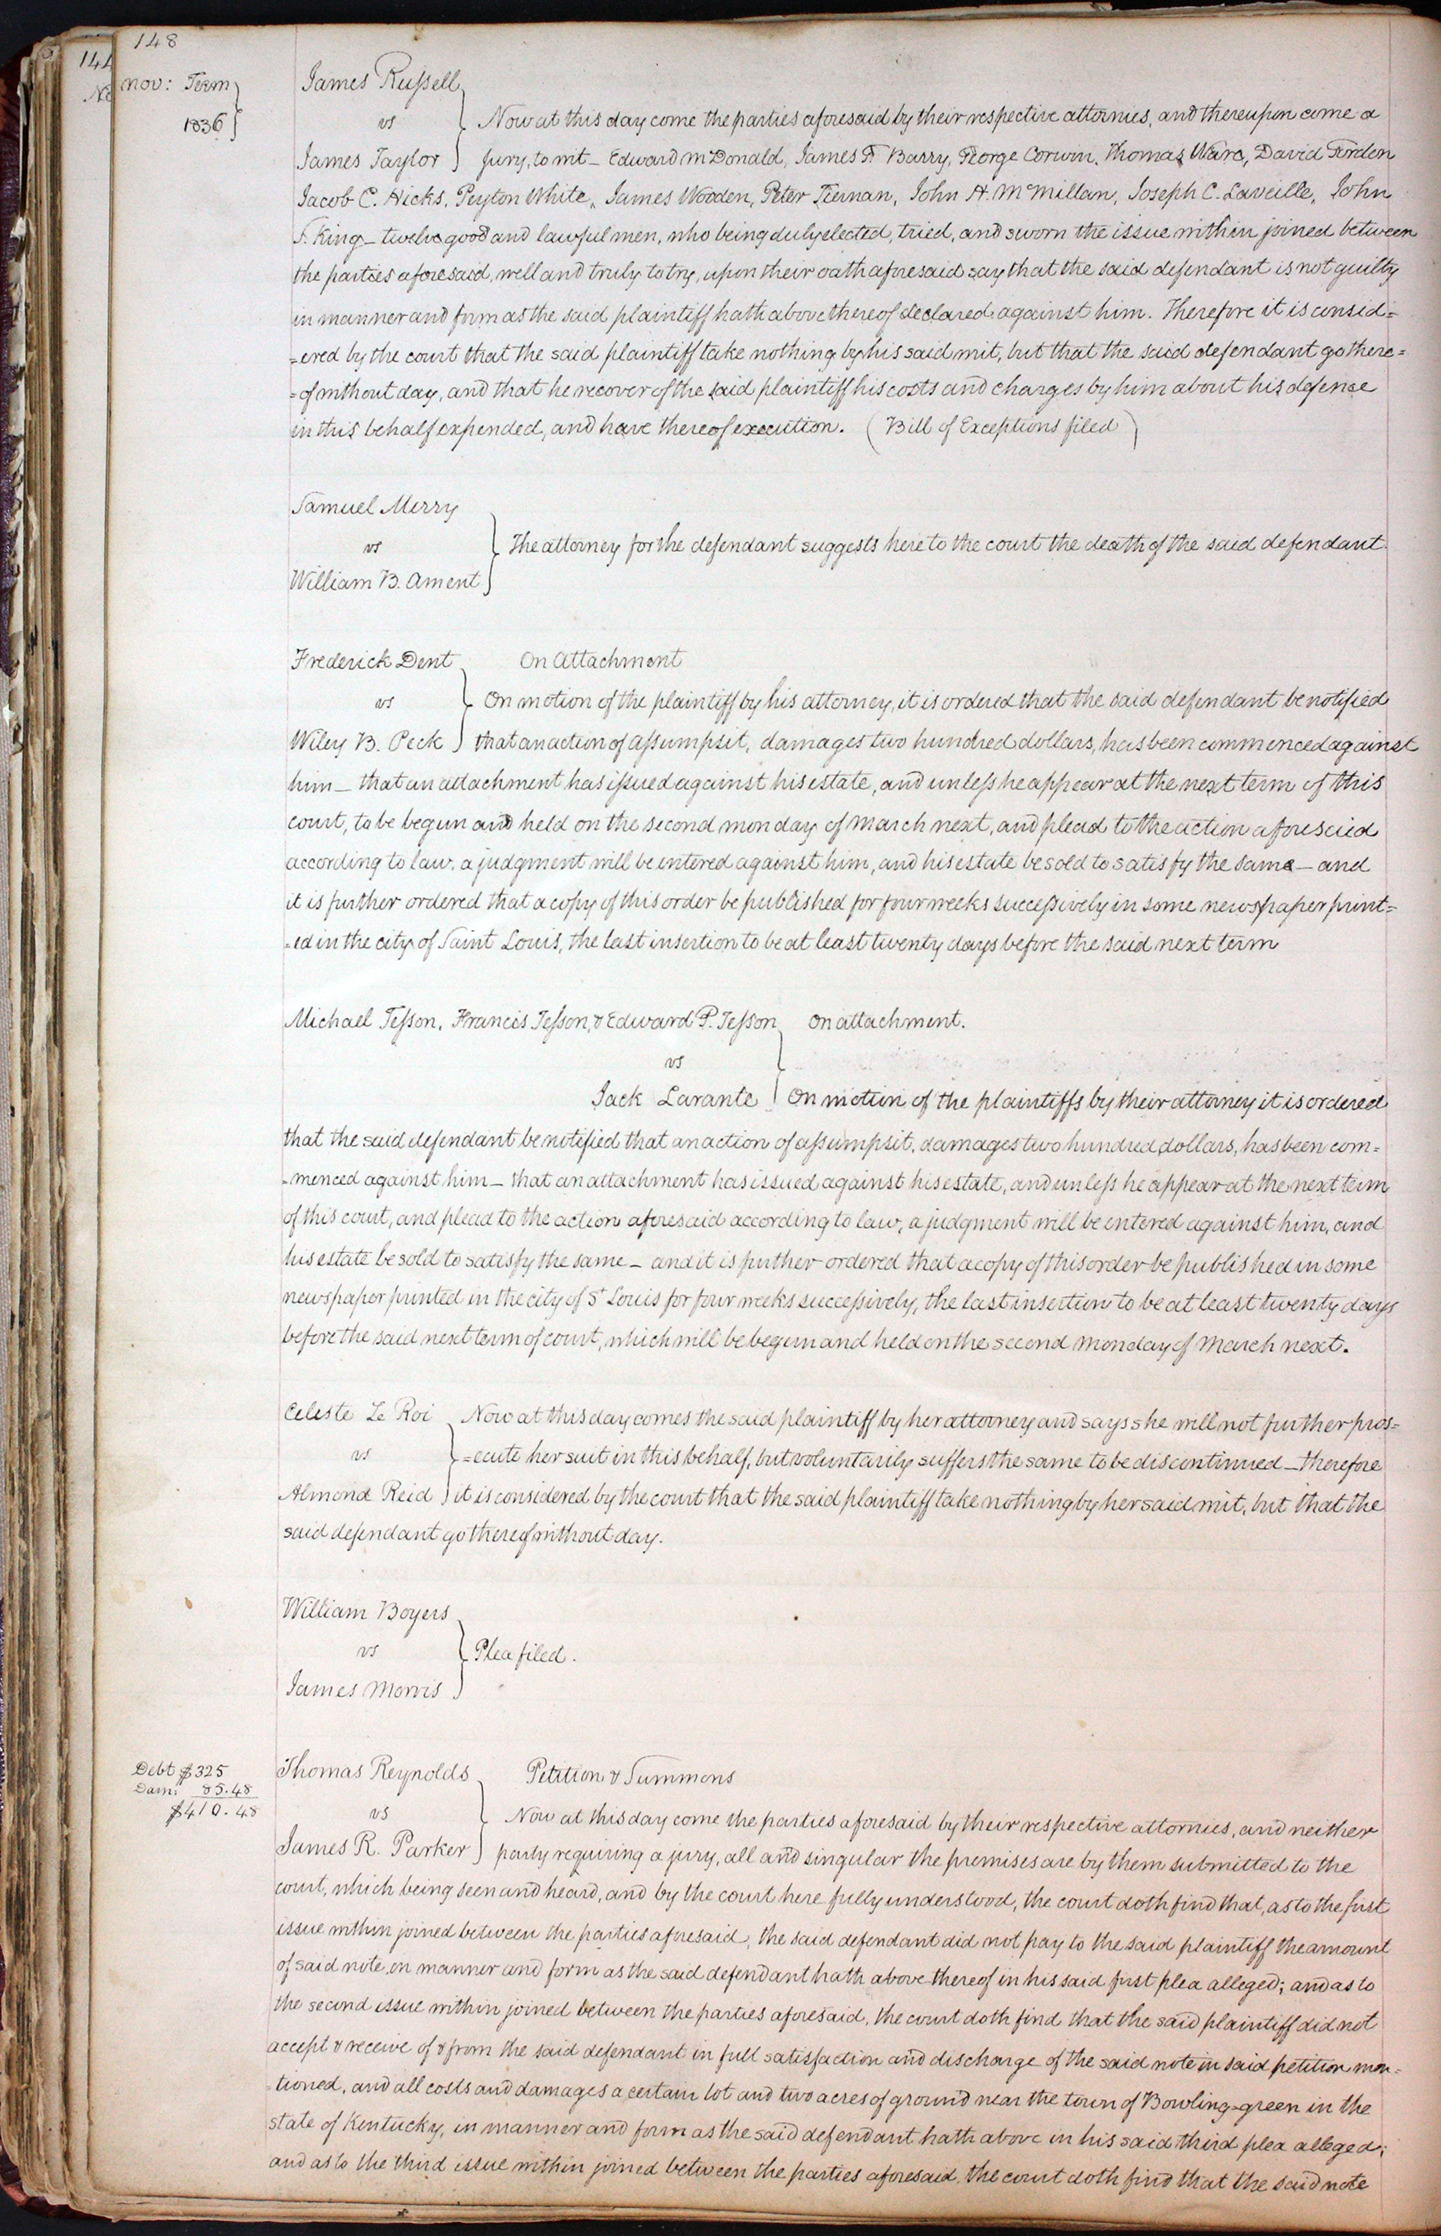 148
144
nov: Term
1836
James Russell
vs
Now at this day come the parties aforesaid by their respective attornies, and thereupon come a
James Taylor jury, to wit - Edward McDonald, James F. Barry, George Corwin, Thomas Ware, David
Jacob C. Hicks, Peyton White, James Wooden, Peter Tiernan, John H. McMillan, Joseph C. Laveille, John
S. King - twelve good and lawful men, who being duly elected, tried, and sworn the issue within joined between
the parties aforesaid, well and truly to try, upon their oath aforesaid say that the said defendant is not guilty
in manner and form as the said plaintiff hath above thereof declared against him. Therefore it is consid=
=ered by the court that the said plaintiff take nothing by his said writ, but that the said defendant go there=
=of without day, and that he recover of the said plaintiff his costs and charges by him about his defense
in this behalf expended, and have thereof execution. (Bill of Exceptions filed)
Samuel Merry
vs
The attorney for the defendant suggests here to the court the death of the said defendant.
William B. Ament
Frederick Dent On Attachment
vs
On motion of the plaintiff by his attorney, it is ordered that the said defendant be notified
Wiley B. Peck that an action of assumpsit, damages two hundred dollars, has been commenced against
him - that an attachment has issued against his estate, and unless he appear at the next term of this
court, to be begun and held on the second monday of March next, and plead to the action aforesaid
according to law, a judgment will be entered against him, and his estate be sold to satisfy the same - and
it is further ordered that a copy of this order be published for four weeks successively in some newspaper print=
=ed in the city of Saint Louis, the last insertion to be at least twenty days before the said next term
Michael Tesson, Francis Tesson, & Edward P. Tesson On attachment.
vs
Jack Larante On motion of the plaintiffs by their attorney it is ordered
that the said defendant be notified that an action of assumpsit, damages two hundred dollars, has been com=
=menced against him - that an attachment has issued against his estate, and unless he appear at the next term
of this court, and plead to the action aforesaid according to law, a judgment will be entered against him, and
his estate be sold to satisfy the same - and it is further ordered that a copy of this order be published in some
newspaper printed in the city of St Louis for four weeks successively, the last insertion to be at least twenty days
before the said next term of court, which will be begun and held on the second Monday of March next.
Celeste Le Roi Now at this day comes the said plaintiff by her attorney and says she will not further pros=
vs =ecute her suit in this behalf, but voluntarily suffers the same to be discontinued - therefore
Almond Reid it is considered by the court that the said plaintiff take nothing by her said writ, but that the
said defendant go thereof without day.
William Boyers
vs Plea filed.
James Morris
Debt $325
Dam: 85.48
$410.48
Thomas Reynolds Petition & Summons
vs Now at this day come the parties aforesaid by their respective attornies, and neither
James R. Parker party requiring a jury, all and singular the premises are by them submitted to the
court, which being seen and heard, and by the court here fully understood, the court doth find that, as to the first
issue within joined between the parties aforesaid, the said defendant did not pay to the said plaintiff the amount
of said note, in manner and form as the said defendant hath above thereof in his said first plea alleged; and as to
the second issue within joined between the parties aforesaid, the court doth find that the said plaintiff did not
accept & receive of & from the said defendant in full satisfaction and discharge of the said note in said petition men=
=tioned, and all costs and damages a certain lot and two acres of ground near the town of Bowling-green in the
state of Kentucky, in manner and form as the said defendant hath above in his said third plea alleged;
and as to the third issue within joined between the parties aforesaid, the court doth find that the said note